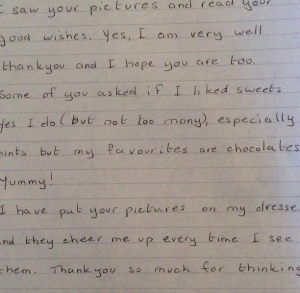 I saw your pictures and read your
good wishes. Yes, I am very well
thankyou and I hope you are too.
Some of you asked if I liked sweets
Yes I do (but not too many), especially
mints but my favourites are chocolates
Yummy!
I have put your pictures on my dresse
and they cheer me up every time I see
them. Thank you so much for thinking